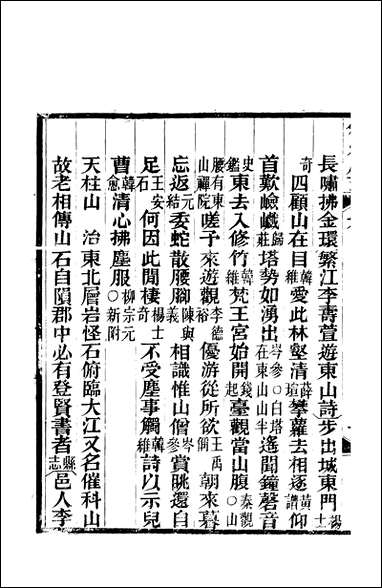 長嘯拂金環繁江李壽萱遊東山詩步出城東門楊士
奇四顧山在目韓維愛此林壑清薛瑄攀蘿去相逐黃譜仰
首歎嶮巇歸莊塔勢如湧出岑參○白塔在東山山半遙聞鐘磬音
史鑑東去入修竹韓維梵王宮始開錢起臺觀當山腹秦觀○山
腰有東山禪院嗟予來遊觀李德裕優游從所欲王禹偁朝來暮
忘返元結委蛇散腰腳陳與義相識惟山僧岑參賞眺還自
足王安石何因此閒棲楊士奇不受塵事觸韓維詩以示兒
曹韓愈清心拂塵服柳宗元○新附
天柱山 治東北層岩怪石俯臨大江又名催科山
故老相傳山石自隕郡中必有登賢書者縣志邑人李